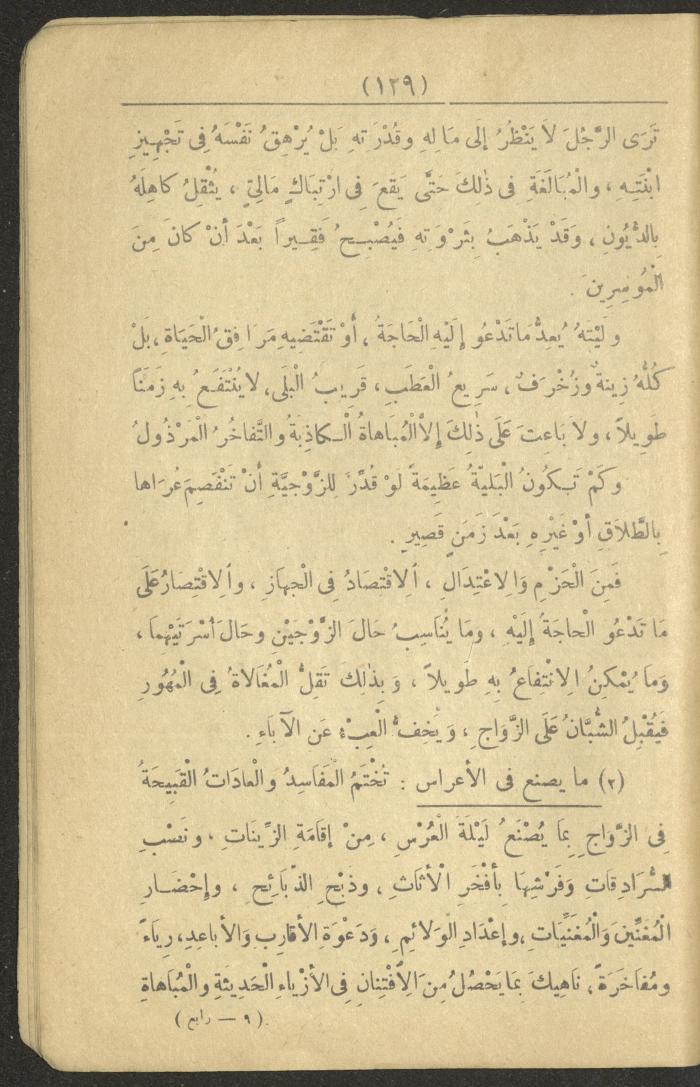 (١٢٩)
تَرَى الرَّجُلَ لاَ يَنْظُرُ إِلَى مَالِهِ وقُدْرَتهِ بَلْ يُرْهِقُ نَفْسَهُ فِى تَجْهِيزِ
ابْنَتِهِ ، والْمُبَالَغَةِ فى ذٰلِكَ حَتَّى يَقَعَ فِى ارْتِبَاكٍ مَالِيٍّ ، يُثْقِلُ كاهِلَهُ
بِالدُّيُونِ ، وَقَدْ يَذْهَبُ بِثَرْوَتِهِ فَيُصْبِحُ فَقِيراً بَعْدَ أنْ كانَ مِنَ
الْمُوسِرِينَ .
ولَيْتَهُ يُعِدُّ مَا تَدْعُو إِلَيْهِ الْحَاجَةُ ، أوْ تَقْتَضِيهِ مَرَافِقُ الْحَيَاةِ ، بَلْ
كُلُّهُ زِينَةٌ وزُخْرَفٌ ، سَرِيعُ الْعَطَبِ ، قَرِيبُ الْبَلَى ، لا يُنْتَفَعُ بِهِ زَمَنًا
طَوِيلاً ، ولاَ بَاعِثَ عَلَى ذٰلِكَ إِلاَّ الْمُبَاهاةُ الْـكاذِبَةُ والتَّفاخُرُ الْمَرْذُولُ
وكَمْ تَـكُونُ الْبَلِيَّةُ عَظِيمَةً لَوْ قُدِّرَ لِلزَّوْجِيَّةِ أنْ تَنْفَصِمَ عُرَاها
بِالطَّلاَقِ أوْ غَيْرِهِ بَعْدَ زَمَنٍ قَصِيرٍ .
فَمِنَ الْحَزْمِ وَالِاعْتِدَالِ ، اَلِاقْتِصَادُ فِى الْجهَازِ ، وَالِاقْتِصَارُ عَلَى
مَا تَدْعُو الْحاجَةُ إِلَيْهِ ، ومَا يُنَاسِبُ حَالَ الزَّوْجَيْنِ وحَالَ أُسْرَتَيْهِمَا ،
وَمَا يُمْكِنُ الِانْتِفَاعُ بِهِ طَوِيلاً ، وَبِذٰلِكَ تَقِلُّ الْمُغَالاَةُ فِى الْمُهُورِ
فَيُقْبِلُ الشُّبَّانُ عَلَى الزَّوَاجِ ، وَيَخِفُّ الْعِبْءُ عَنِ الْآبَاءِ .
(٢) ما يصنع فى الأعراس : تُخْتَمُ الْمَفَاسِدُ والْعادَاتُ الْقَبِيحَةُ
فِى الزَّوَاجِ بِمَا يُصْنَعُ لَيْلَةَ الْعُرْسِ ، مِنْ إِقَامَةِ الزِّينَاتِ ، ونَصْبِ
السُّرَادِقَاتِ وَفَرْشِهَا بِأفْخَرِ الْأثَاثِ ، وذَبْحِ الذَّبَائِحِ ، وإِحْضَـارِ
الْمُغَنِّينَ وَالْمُغَنِّيَاتِ ، وإعْدَادِ الْوَلاَئِمِ ، وَدَعْوَةِ الأقَارِبِ وَالأباعِدِ، رِيَاءً
ومُفَاخَرَةً ، نَاهِيكَ بِمَا يَحْصُلُ مِنَ الاِفْتِنَانِ فِى الْأَزْيَاءِ الْحَدِيثَةِ والْمُبَاهَاةِ
(٩ — رابع)